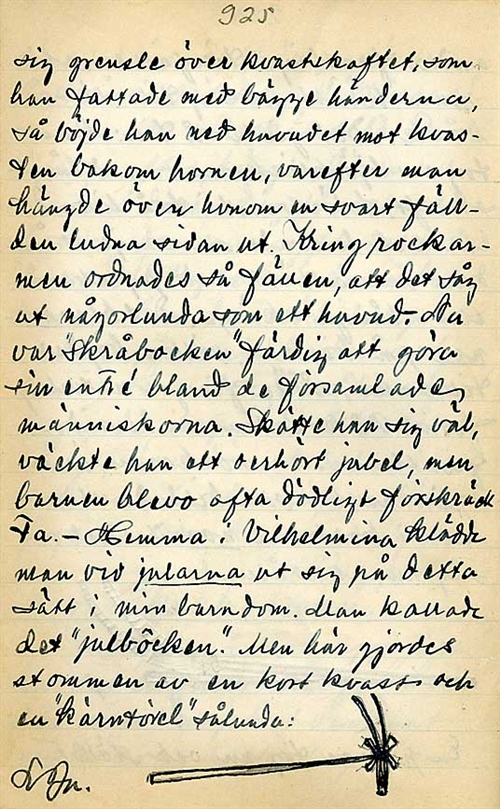 925
sig grensle över kvastskaftet, som
han fattade med bägge händerna,
så böjde han ned huvudet mot kvas-
ten bakom hornen, varefter man
hängde över honom en svart fäll-
den ludna sidan ut. Kring rockar-
men ordnades så fällen, att det såg
ut någorlunda som ett huvud. Nu
var "Skråbocken" färdig att göra
sin entré bland de församlade
människorna. Skötte han sig väl,
väckte han ett oerhört jubel, men
barnen blevo ofta dödligt förskräck
ta. — Hemma i Vilhelmina klädde
man vid jularna ut sig på detta
sätt i min barndom. Man kallade
det "julböcken". Men här gjordes
stommen av en kort kvast och
en "kärntörel" sålunda: